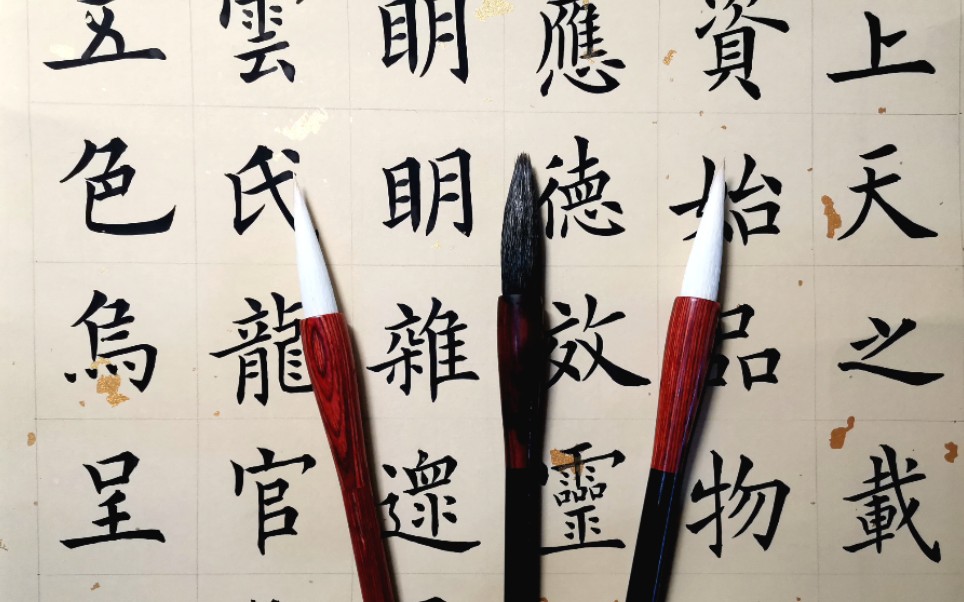 上天之載
資始品物
應德效靈
眀眀雜遝
雲氏龍官
五色烏呈